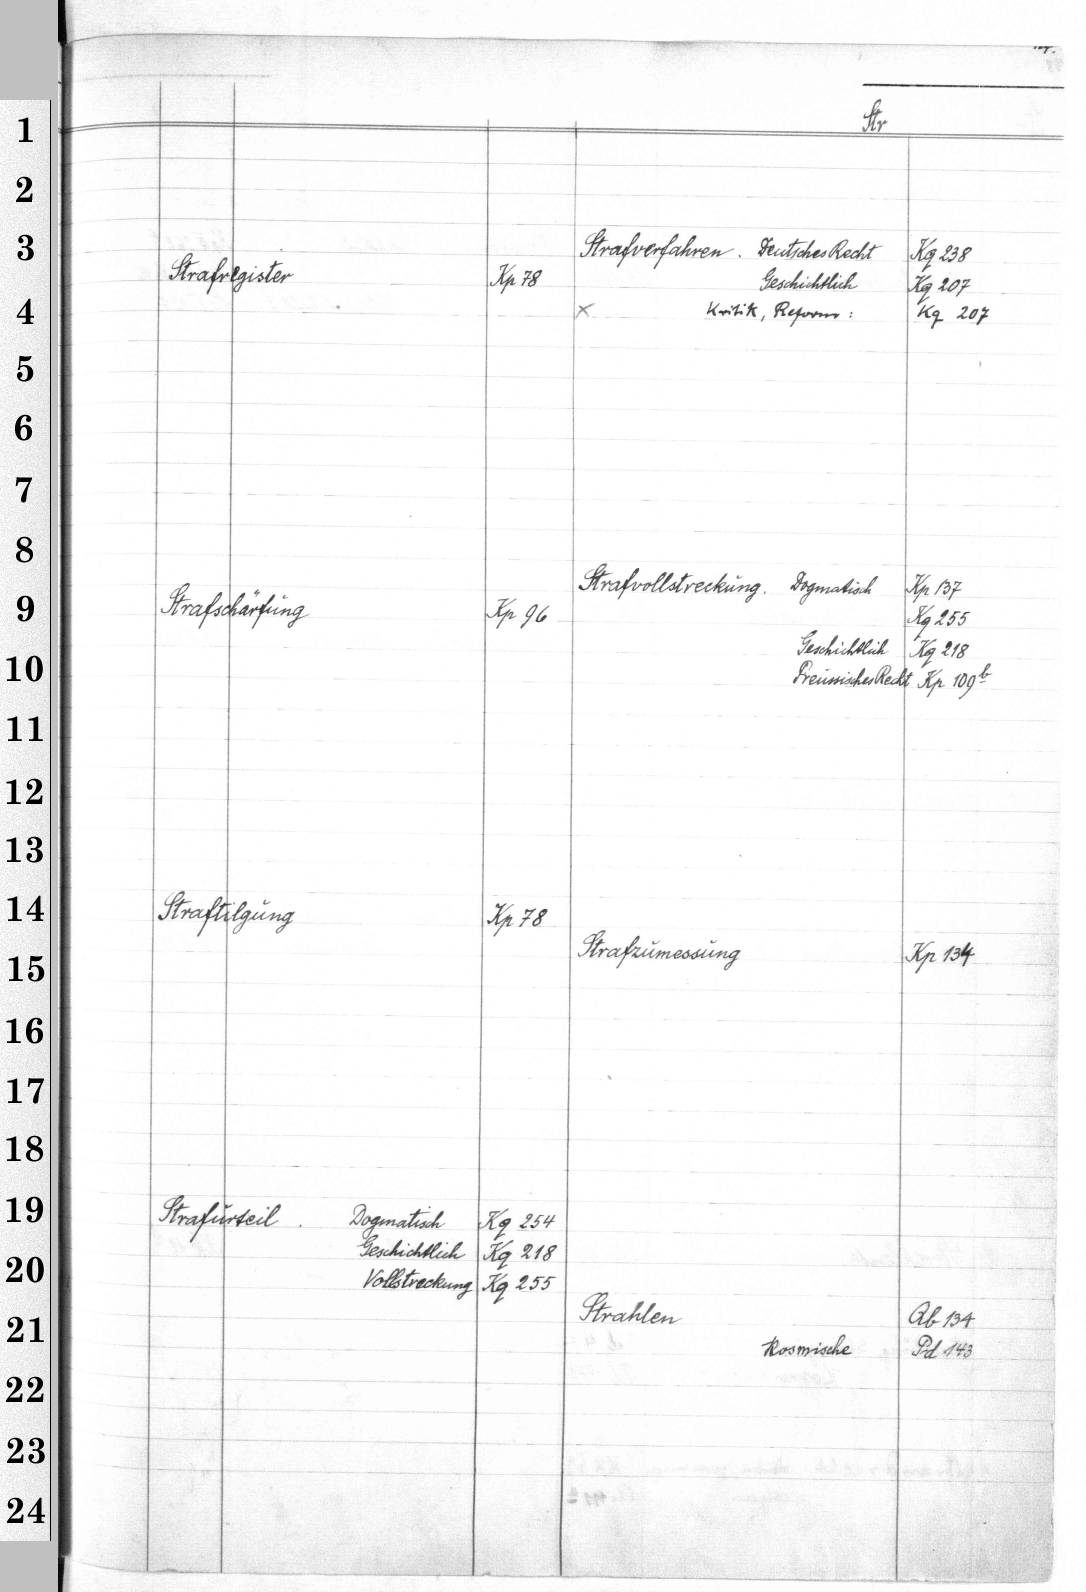 Str
1
2
3
4
5
6
7
8
9
10
11
12
13
14
15
16
17
18
19
20
21
22
23
24
Strafregister Kp 78
Strafschärfung Kp 96
Straftilgung Kp 78
Strafurteil . Dogmatisch Kq 254
Geschichtlich Kq 218
Vollstreckung Kq 255
Strafverfahren . Deutsches Recht Kq 238
Geschichtlich Kq 207
× Kritik, Reform : Kq 207
Strafvollstreckung . Dogmatisch Kp 137
Kq 255
Geschichtlich Kq 218
Preussisches Recht Kp 109b
Strafzumessung Kp 134
Strahlen Ab 134
Kosmische Pd 143